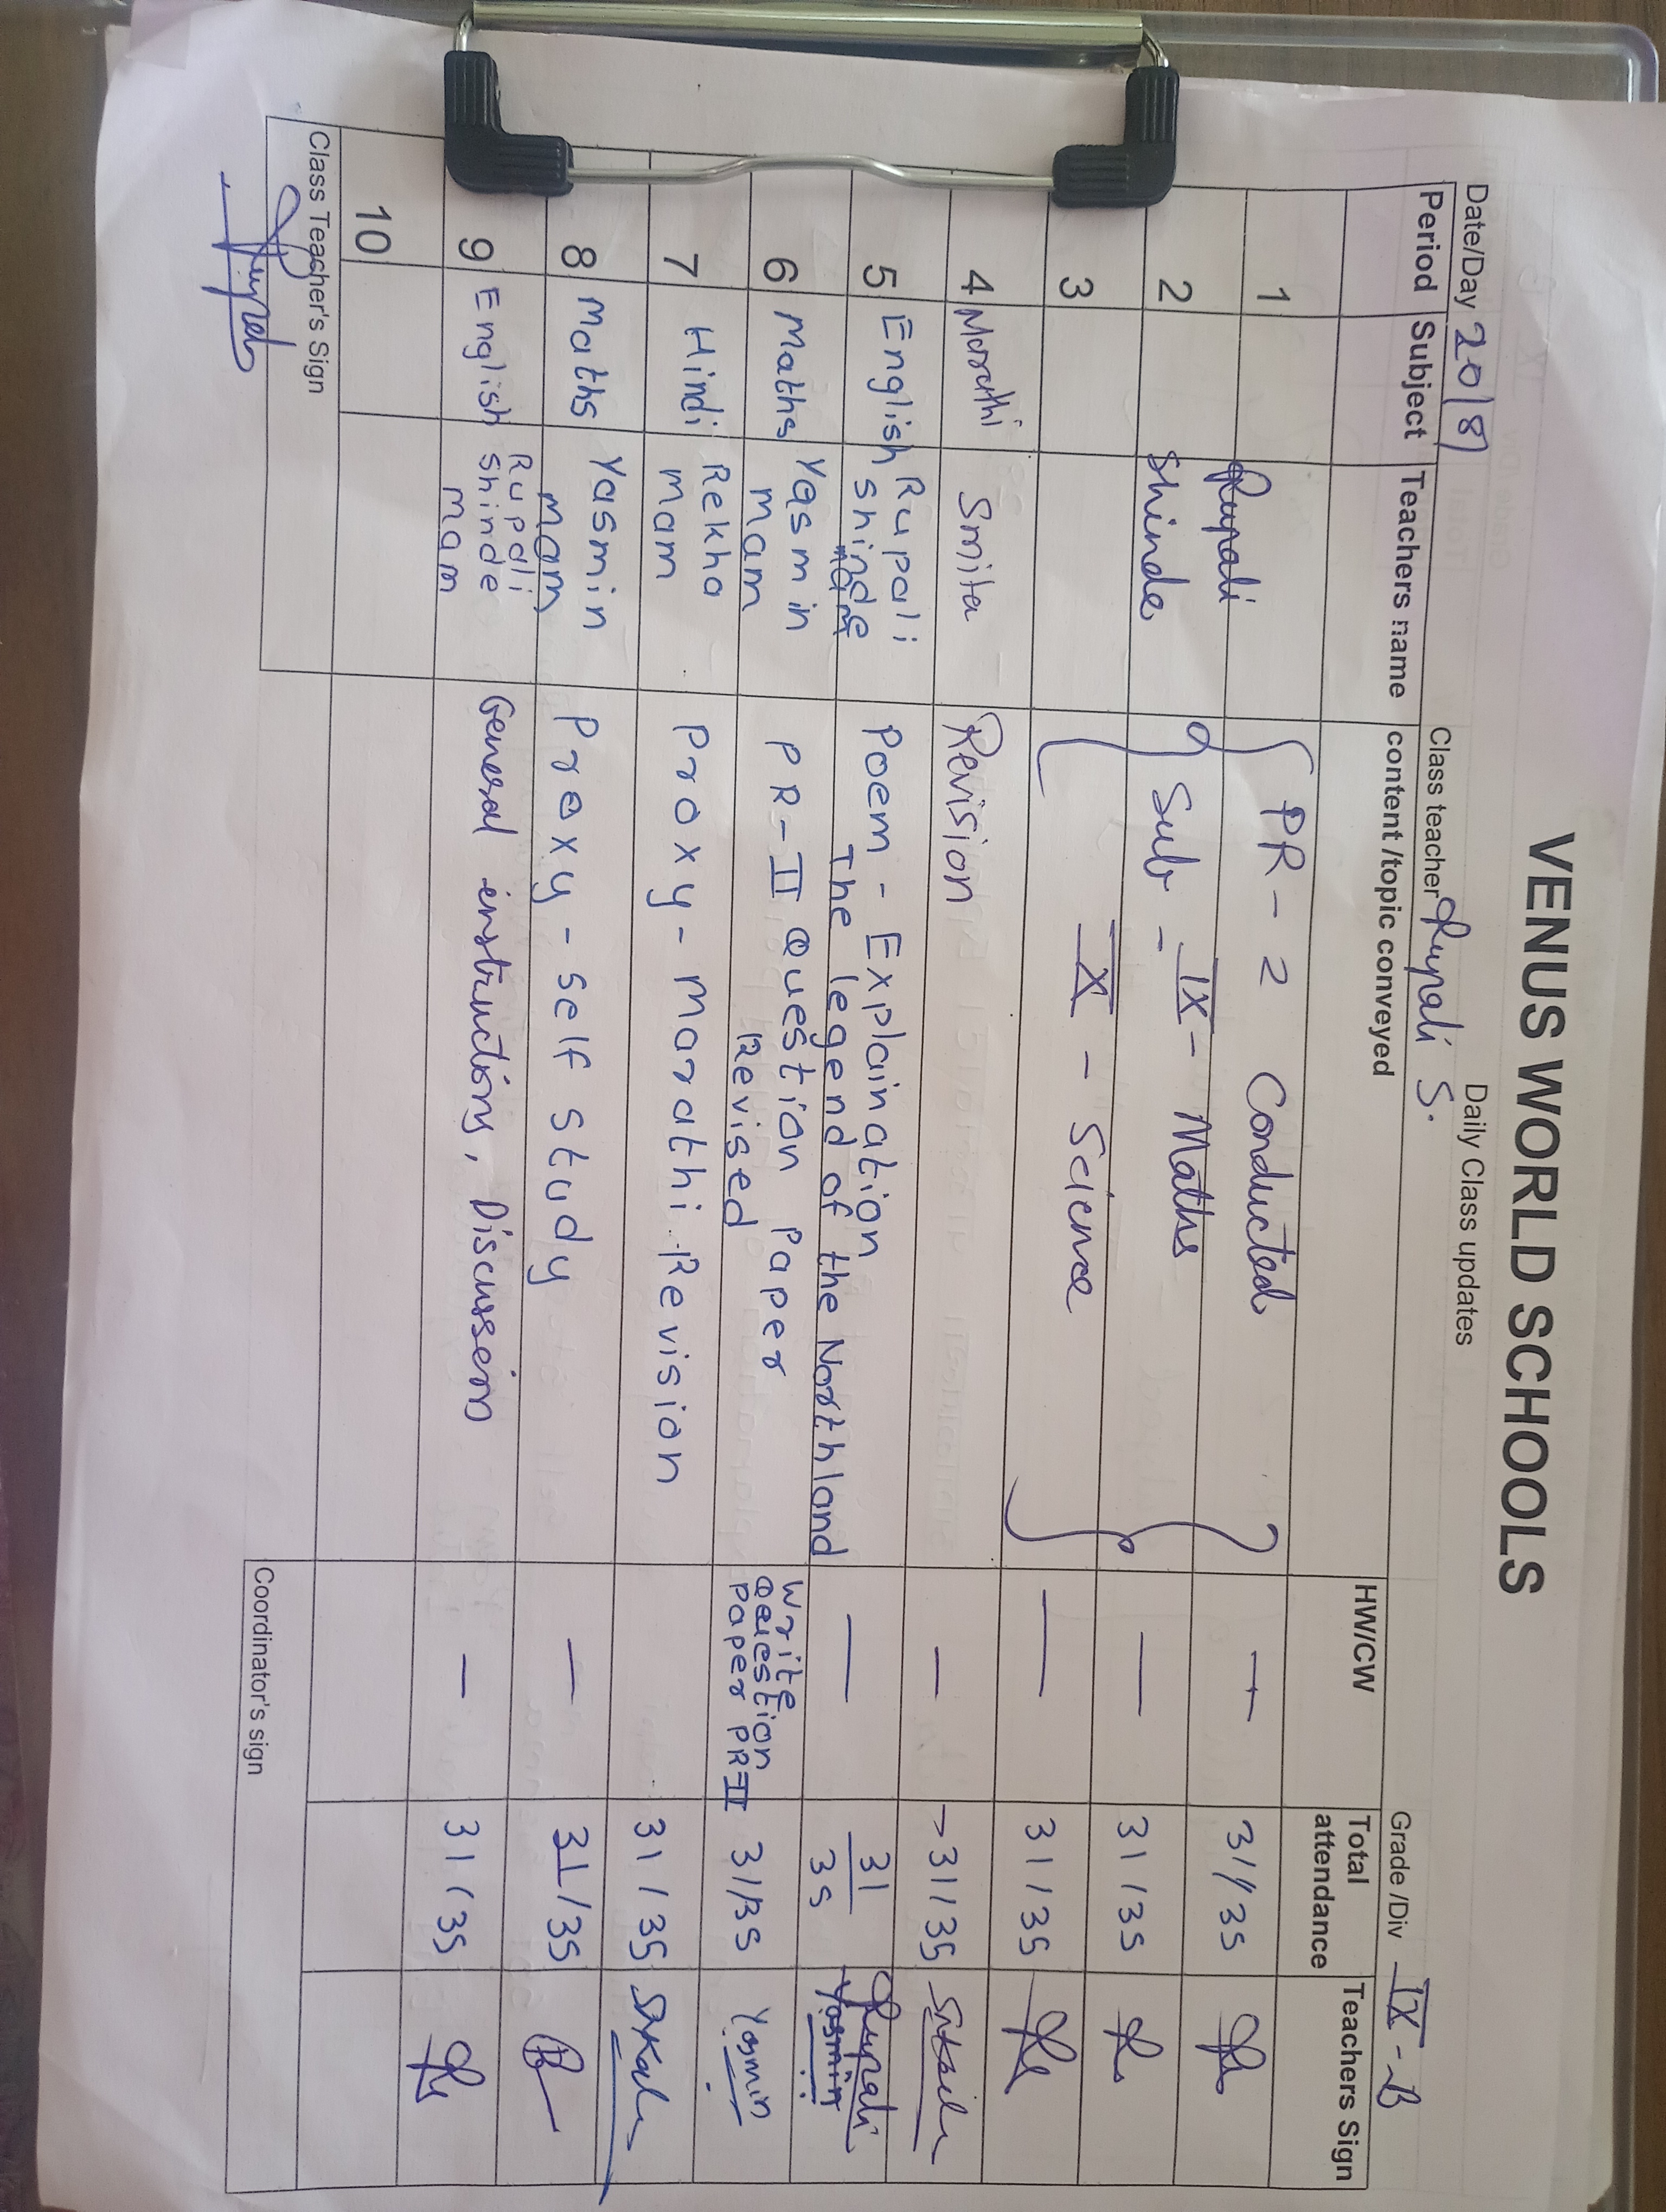 VENUS WORLD SCHOOLS
Daily Class updates
Date/Day 20/8 Class teacher Rupali S. Grade /Div IX - B
Period Subject Teachers name content /topic conveyed HW/CW Total attendance Teachers Sign
1 Rupali PR - 2 Conducted — 31/35
2 Shinde Sub - IX - Maths — 31/35
3 X - Science — 31/35
4 Marathi Smita Revision — 31/35
5 English Rupali Shinde mam Poem - Explaination — 31/35 Rupali
The legend of the Northland Yasmin
6 Maths Yasmin mam PR-II Question Paper Revised Write Question Paper PR-II 31/35 Yasmin
7 Hindi Rekha Mam Proxy - Marathi Revision 31/35
8 Maths Yasmin mam Proxy - self study — 31/35
9 English Rupali Shinde mam General instructions, Discussion — 31/35
10
Class Teacher's Sign Coordinator's sign